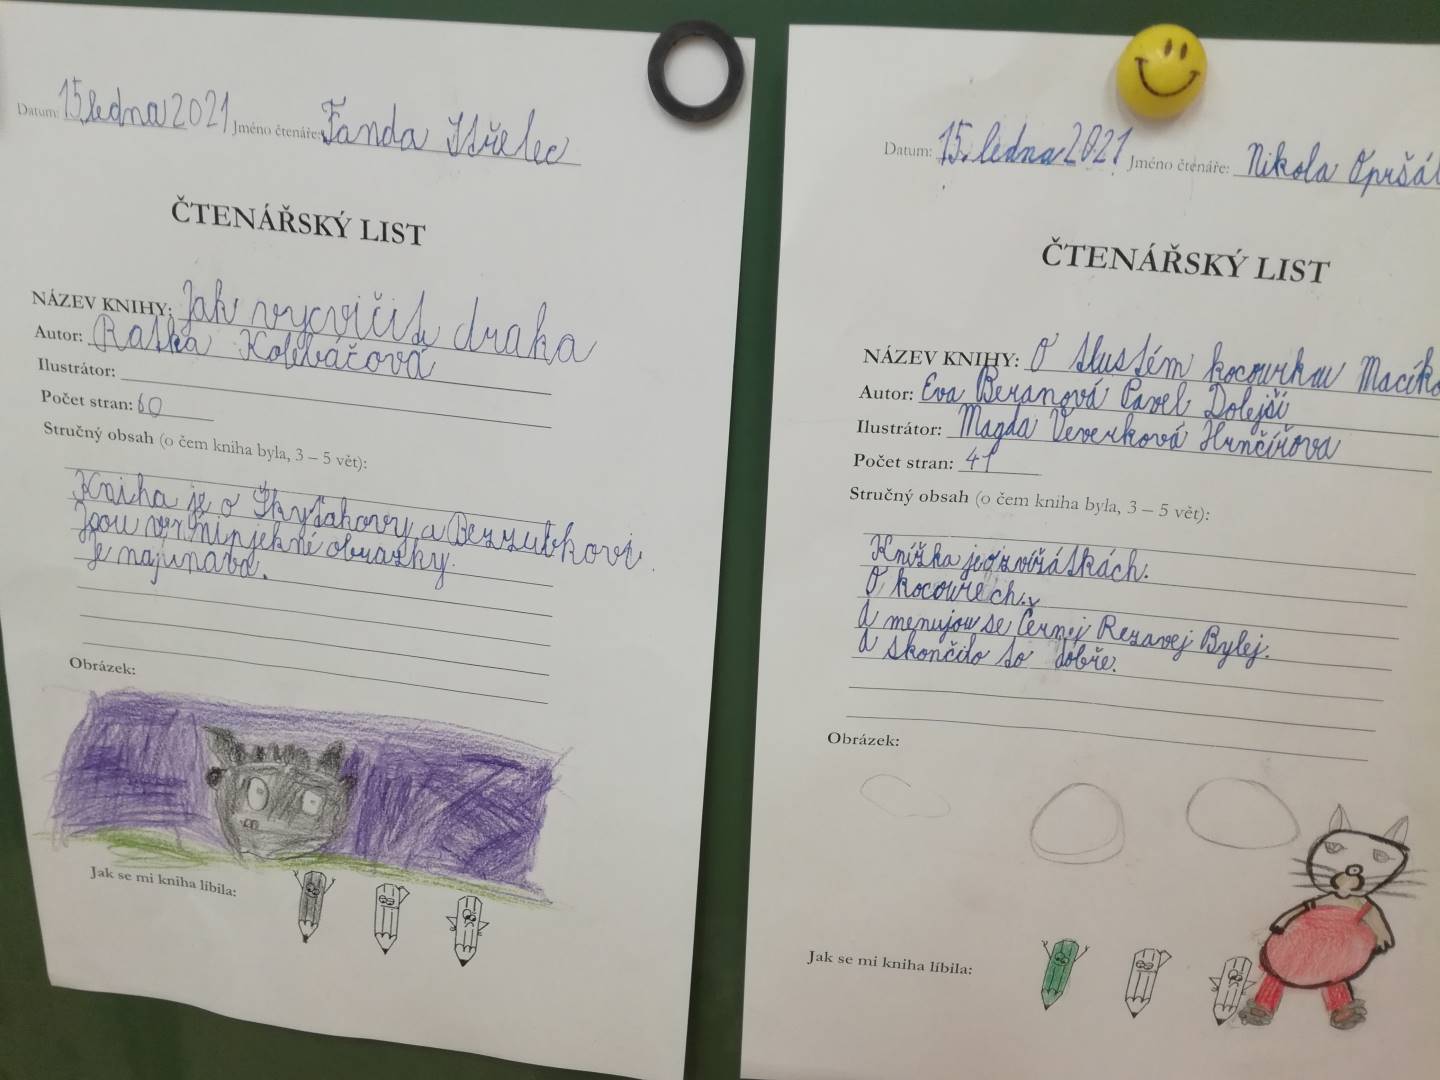 Datum: 15. ledna 2021 Jméno čtenáře: Fanda Střelec
ČTENÁŘSKÝ LIST
NÁZEV KNIHY: Jak vycvičit draka
Autor: Ratka Kolebáčová
Ilustrátor:
Počet stran: 60
Stručný obsah (o čem kniha byla, 3 – 5 vět):
Kniha je o Škyťákovy a Bezzubkovi.
Jsou v ní pjekné obrazky.
Je
Obrázek:
Jak se mi kniha líbila:
Datum: 15. ledna 2021 Jméno čtenáře: Nikola Opršál
ČTENÁŘSKÝ LIST
NÁZEV KNIHY: O tlustém kocourkou Macíko
Autor: Eva Beranová Pavel Dolejší
Ilustrátor: Magda Veverková Hrnčířova
Počet stran: 41
Stručný obsah (o čem kniha byla, 3 – 5 vět):
Knížka je o zvířátkách.
O kocourech.
A menujou se Černej Rezavej Bylej.
A skončilo to dobře.
Obrázek:
Jak se mi kniha líbila: